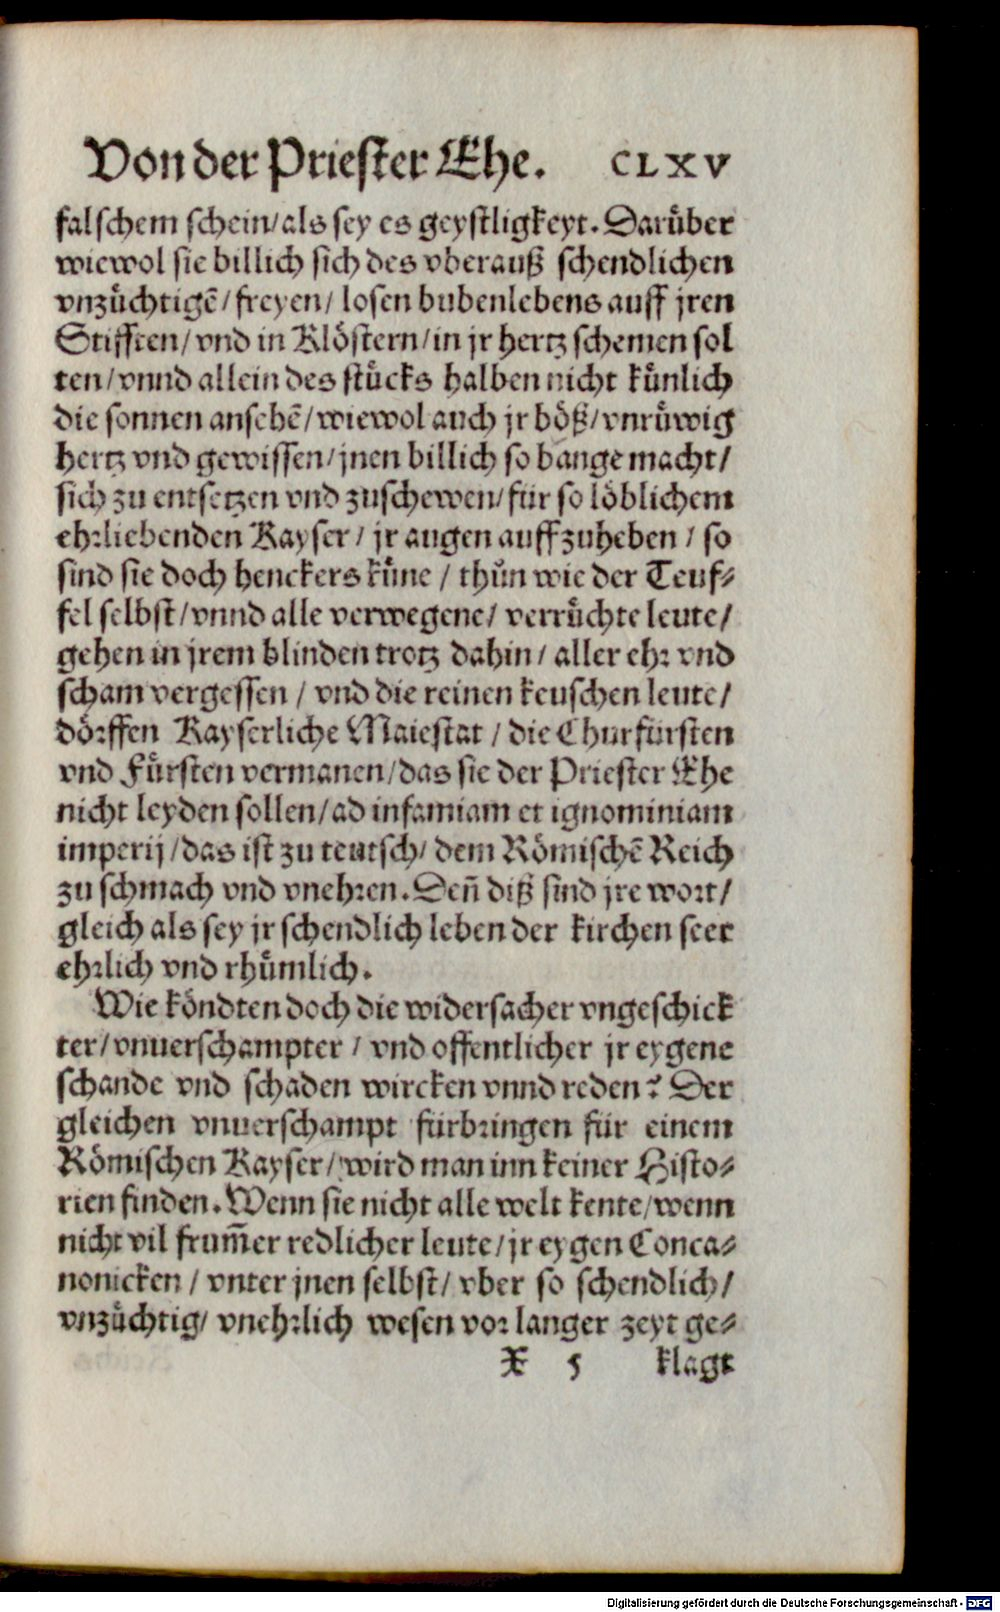 Von der Priester Ehe. CLXV
falschem schein/als sey es geystligkeyt. Darüber
wiewol sie billich sich des vberauß schendlichen
vnzüchtigẽ/freyen/ losen bubenlebens auff jren
Stifften/ vnd in Klöstern/in jr hertz schemen sol
ten/vnnd allein des stücks halben nicht künlich
die sonnen ansehẽ/wiewol auch jr böß/vnrüwig
hertz vnd gewissen/jnen billich so bange macht/
sich zu entsetzen vnd zuschewen/für so löblichem
ehrliebenden Kayser/ jr augen auffzuheben / so
sind sie doch henckers küne / thůn wie der Teuf⸗
fel selbst/vnnd alle verwegene/ verrůchte leute/
gehen in jrem blinden trotz dahin/ aller ehr vnd
scham vergessen / vnd die reinen keuschen leute/
dörffen Kayserliche Maiestat / die Churfürsten
vnd Fürsten vermanen/das sie der Priester Ehe
nicht leyden sollen/ad infamiam et ignominiam
imperij/das ist zu teutsch/ dem Römischẽ Reich
zu schmach vnd vnehren. Deñ diß sind jre wort/
gleich als sey jr schendlich leben der kirchen seer
ehrlich vnd rhümlich.
Wie köndten doch die widersacher vngeschick
ter/vnuerschampter / vnd offentlicher jr eygene
schande vnd schaden wircken vnnd reden? Der
gleichen vnuerschampt fürbringen für einem
Römischen Kayser/ wird man inn keiner Histo⸗
rien finden. Wenn sie nicht alle welt kente/wenn
nicht vil frum̃er redlicher leute/jr eygen Conca⸗
nonicken / vnter jnen selbst/ vber so schendlich/
vnzüchtig/ vnehrlich wesen vor langer zeyt ge⸗
X 5 klagt
Digitalisierung gefördert durch die Deutsche Forschungsgemeinschaft - DFG